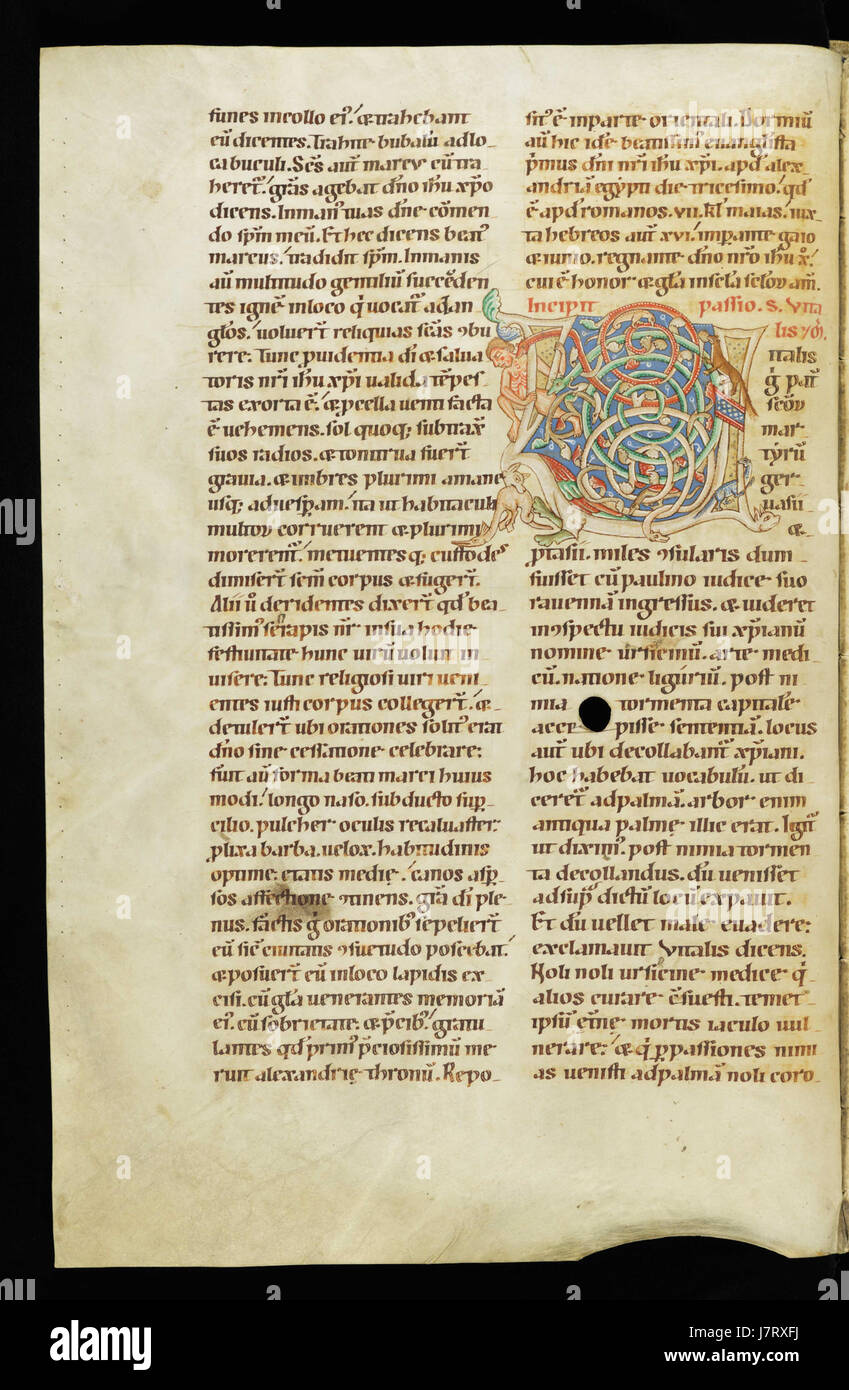 funes in collo ei᾽. ⁊ trahebant
eū dicentes. Trahite bubalū ad lo
ca buculi. Scs̄ aut̄ marcus cū tra
heret᷑. grās agebat dn̄o ihū xp̄o
dicens. In man᾽ tuas dn̄e com̄en
do sp̄m meū. Et hec dicens beat᾽
marcus. tradidit sp̄m. In manis
aū multitudo gentiliū succēden
tes ignē in loco q̇ uocat᷑ ad an
glōs. uoluer̄t reliquias scās ꝯbu
rere. Tunc ꝓuidentia dī ⁊ salua
toris nr̄i ihū xp̄i ualida tēpes
tas exorta ē. ⁊ ꝓcella uenti facta
ē uehemens. sol quoq; subtrax̄
suos radios. ⁊ tonitrua fuer̄t
grauia. ⁊ imbres plurimi a mane
usq; ad uesꝑam. ita ut habitacula
multoꝝ corruerent ⁊ plurimi
morerent᷑. metuentesq; custodes
dimiser̄t sc̄m corpus ⁊ fuger̄t.
Alii ū deridentes dixer̄t qd̄ bea
tissim᾽ serapis nr̄ in sua hodie
festiuitate hunc uirū uoluit in
uisere. Tunc religiosi uiri ueni
entes iusti corpus colleger̄t. ⁊
detuler̄t ubi orationes solit᾽ erat
dn̄o sine cessatione celebrare.
fuit aū forma beati marci huius
modi. longo naso. subducto suꝑ
cilio. pulcher oculis recaluaster.
ꝓlixa barba. uelox. habitudinis
optime. etatis medie. canos asꝑ
sos affectione ꝯtinens. grā dī ple
nus. factis g̊ orationib᾽ sepelier̄t
eū sic̄ ciuitatis ꝯsuetudo poscebat.
⁊ posuer̄t eū in loco lapidis ex
cisi. cū glā uenerantes memoriā
ei᾽. cū sobrietate. ⁊ p̄cib᾽. gratu
lantes qd̄ prim᾽ p̄ciosissimū me
ruit alexandrię thronū. Repo
sit᾽ ē in parte orientali. Dormiū
aū hic idē beatissim᾽ euangl̄ista
p̄mus dn̄i nr̄i ihū xp̄i. apd̄ alex
andriā egypti die tricesimo. qd̄
ē apd̄ romanos. vii. kl̄ maias. iux
ta hebreos aut̄ xvi. imꝑante gaio
⁊ iunio. regnante dn̄o nr̄o ihū x̄.
cui ē honor ⁊ glā in scl̄a scl̄oꝝ am̄.
Incipit passio. S. Vita
lis
italis
g̊ pat̄
scōꝝ
mar
tyrū
ger
uasii
⁊
ꝓtasii. miles ꝯsularis dum
fuisset cū paulino iudice suo
rauennā ingressus. ⁊ uideret
in ꝯspectu iudicis sui xp̄ianū
nomine ursicinū. arte medi
cū. natione liguriū. post ni
mia tormenta capitalē
accepisse sententiā. locus
aut̄ ubi decollabant᷑ xp̄iani.
hoc habebat uocabulū. ut di
ceret᷑ ad palmā. arbor enim
antiqua palmę illic erat. Igit᷑
ut dixim᾽. post nimia tormen
ta decollandus. dū uenisset
ad sup̄dictū locū expauit.
Et dū uellet male euadere.
exclamauit Vitalis dicens.
Noli noli ursicine medice q̇
alios curare c̄suesti. temet
ipsū et̄nę mortis iaculo uul
nerare. ⁊ q̇ ꝑ passiones nimi
as uenisti ad palmā noli coro
alamy
Image ID: J7RXFJ
www.alamy.com